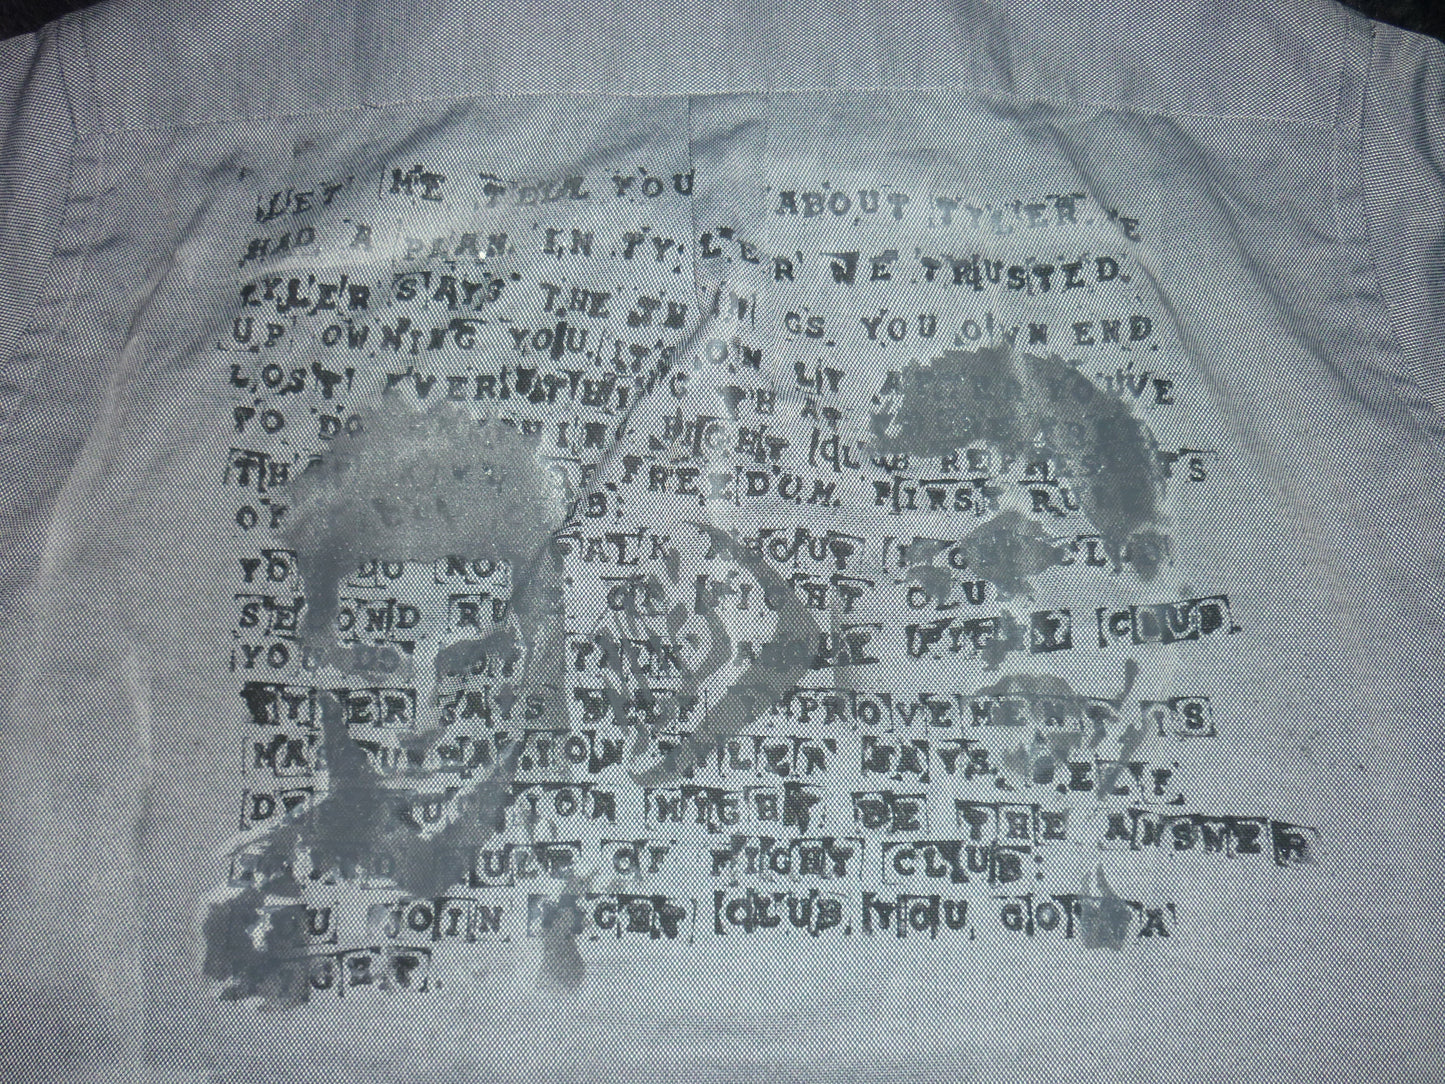 LET ME TELL YOU ABOUT TYLER. E
HAD A PLAN. IN TYLER WE TRUSTED.
TYLER SAYS THE THINGS YOU OWN END
UP OWNING YOU. IT'S ONLY AFTER YOU'VE
LOST EVERYTHING THAT
TO DO ANYTHING. FIGHT CLUB REPRESENTS
TH OF FREEDOM. FIRST RU
OF B:
YOU DO NOT TALK ABOUT FIGHT CLUB
SECOND RU OF FIGHT CLU
YOU DO NOT TALK ABOUT FIGHT CLUB.
TYLER SAYS SELF IMPROVEMENT IS
MASTURBATION TYLER SAYS SELF
DESTRUCTION MIGHT BE THE ANSWER
RULE OF FIGHT CLUB:
U JOIN FIGHT CLUB YOU GOT A
FIGHT.